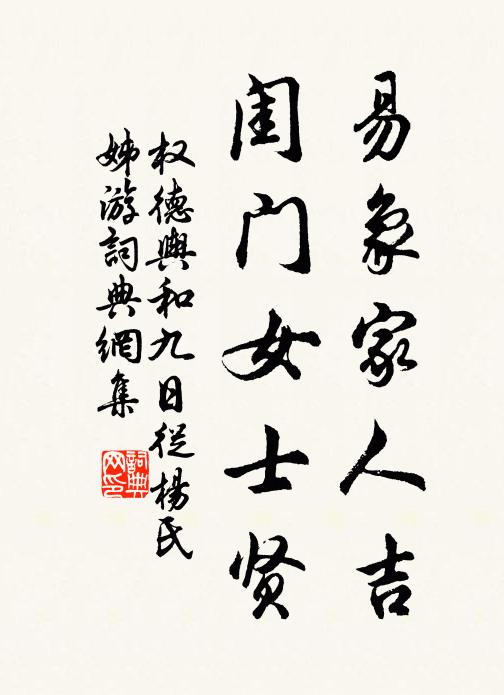 易象家人吉
闺门女士贤
权德舆和九日从杨氏
姊游词典網集
詞典网印